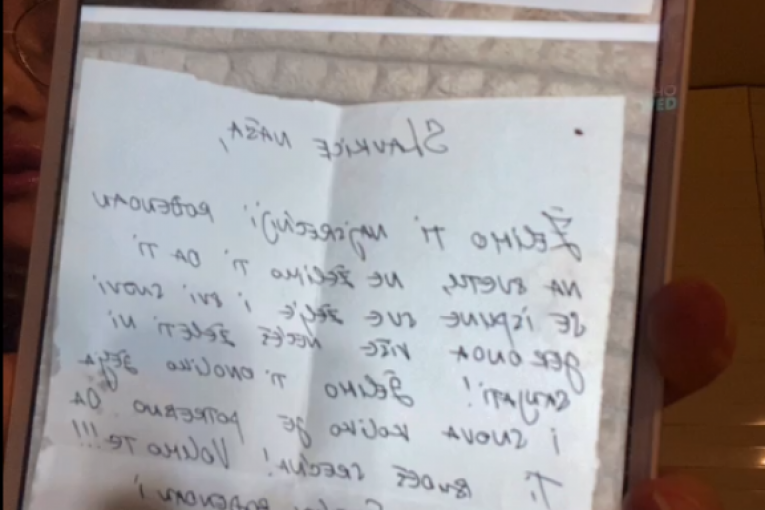 SLAVKICE NAŠA,
ŽELIMO TI NAJSREĆNIJI ROĐENDAN
NA SVETU, NE ŽELIMO TI DA TI
SE ISPUNE SVE ŽELJE I SVI SNOVI
JER ONDA VIŠE NEĆEŠ ŽELETI NI
SANJATI! ŽELIMO TI ONOLIKO ŽELJA
I SNOVA KOLIKO JE POTREBNO DA
TI BUDEŠ SREĆNA! VOLIMO TE!!!
ROĐENDAN!